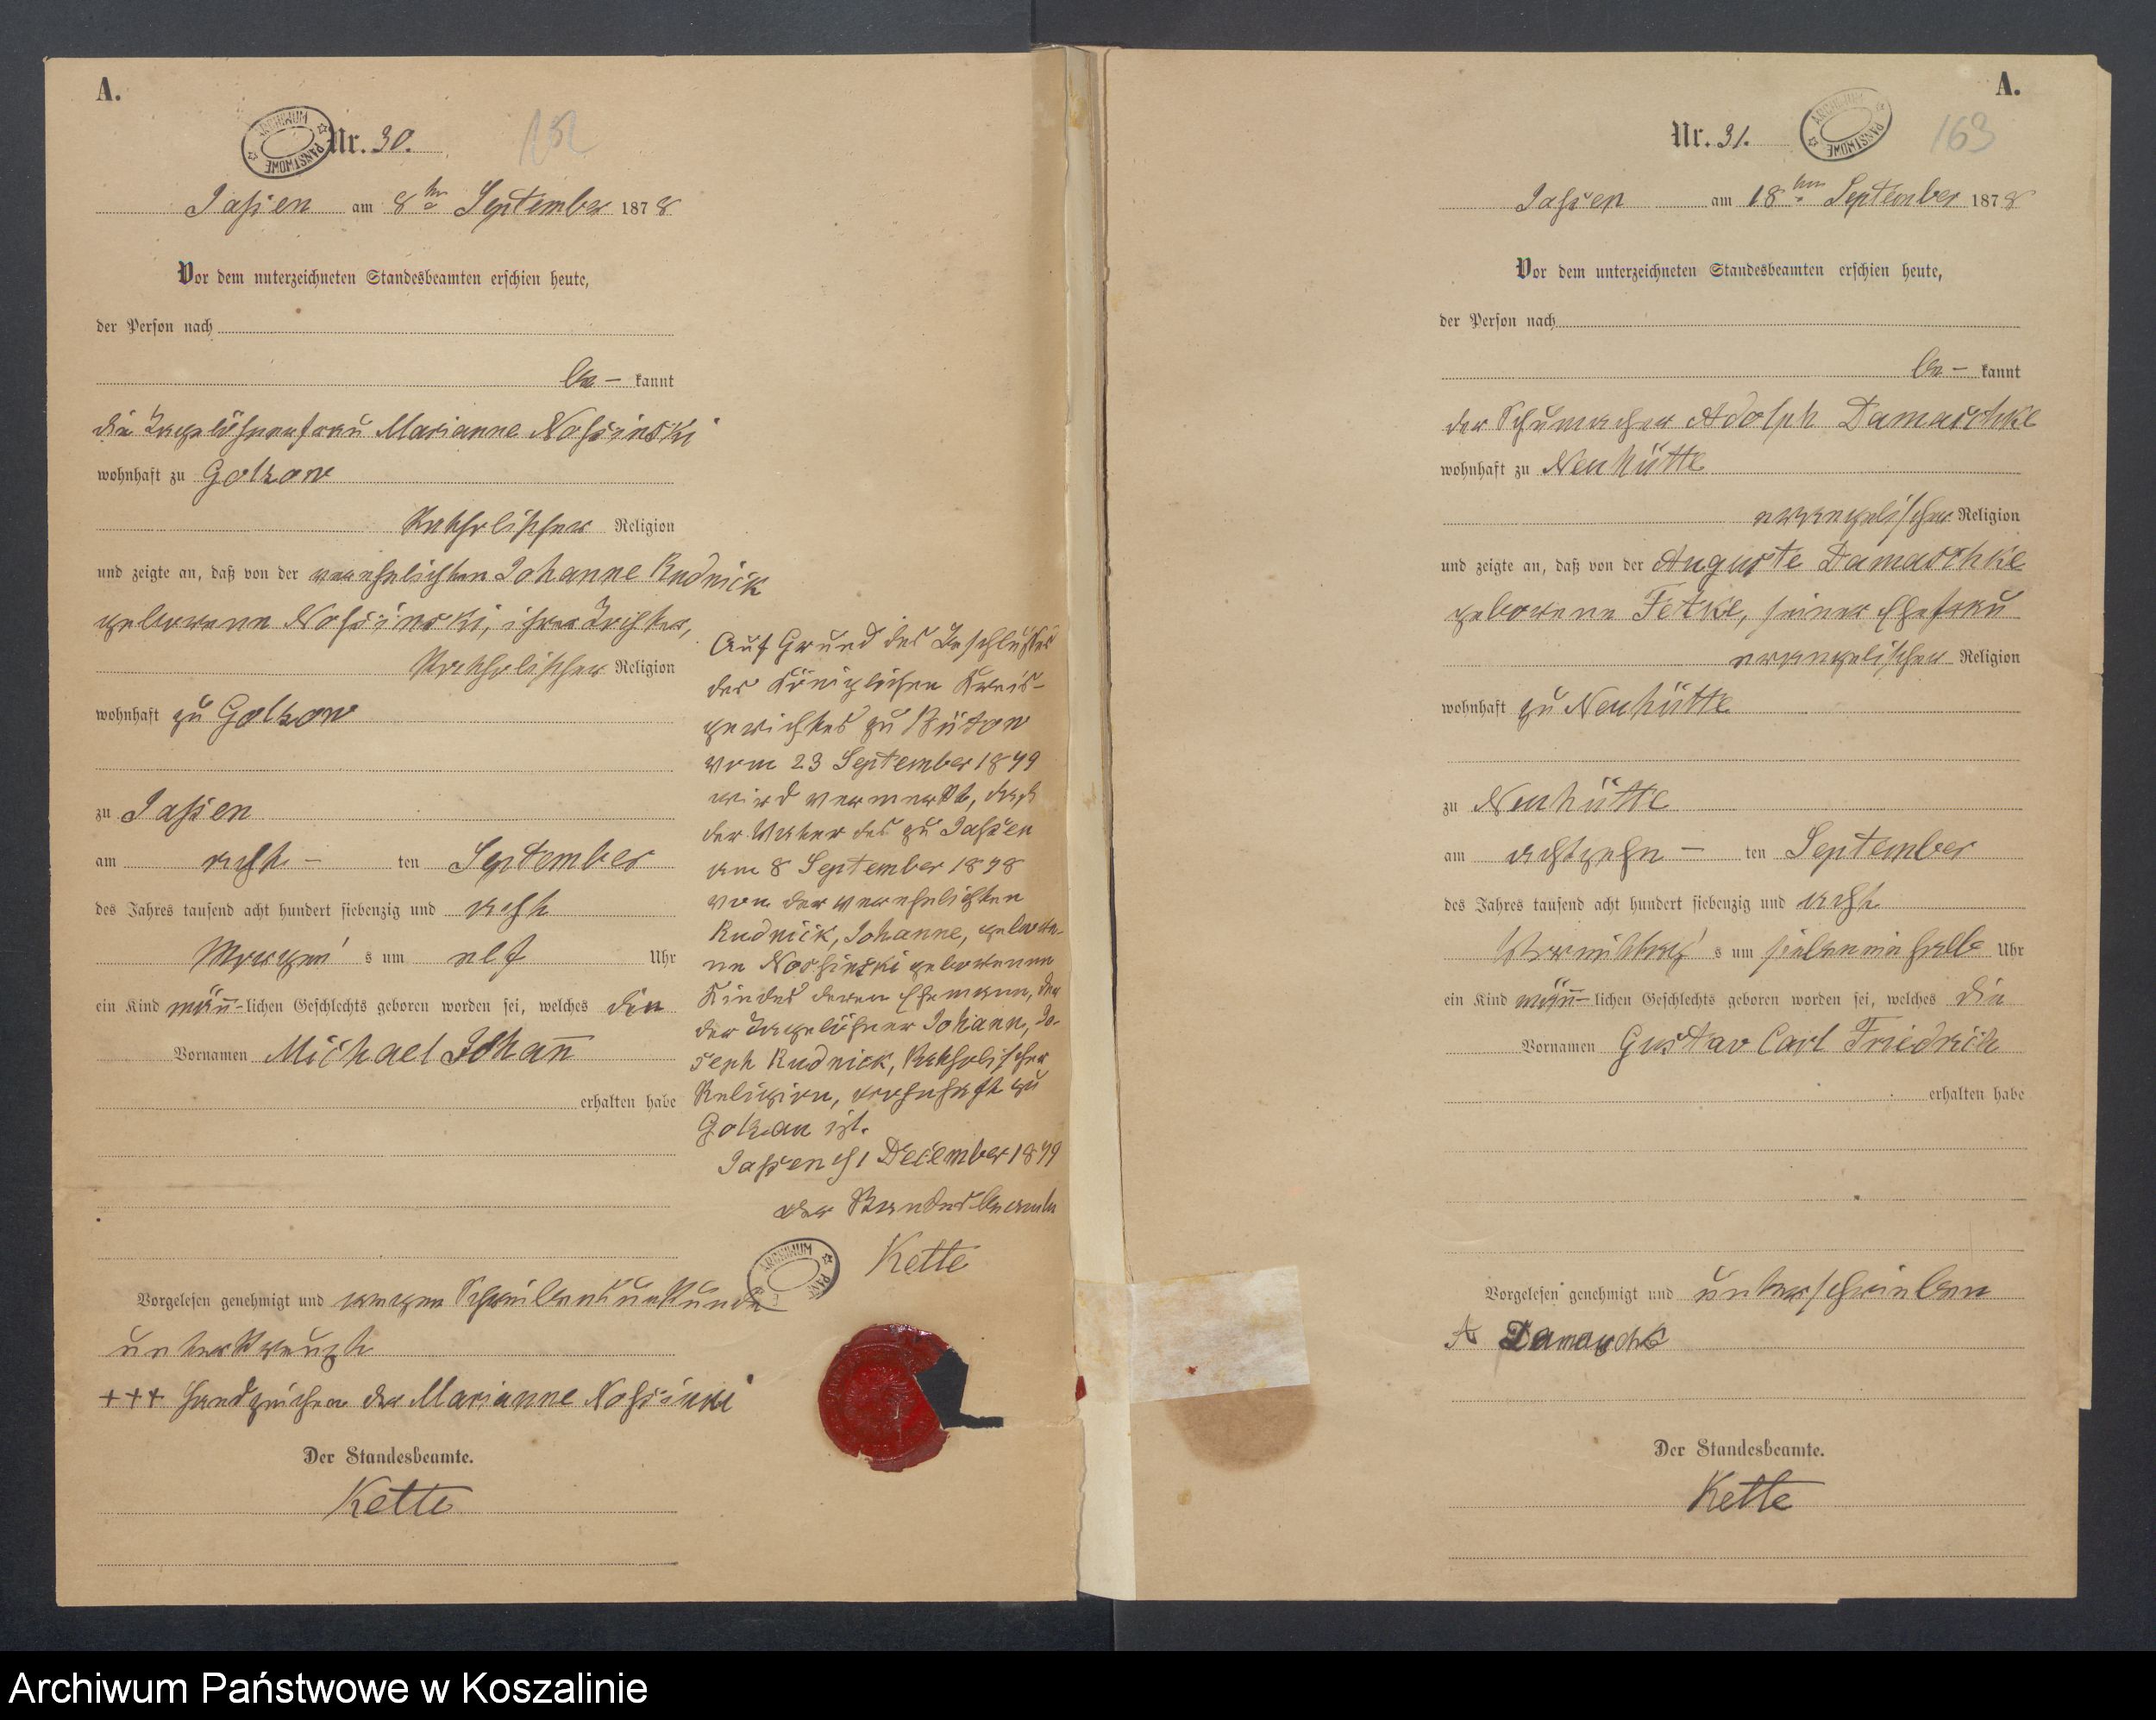 A.
Nr. 30.
ARCHIWUM PAŃSTWOWE
Jassen am 8ten September 1878
Vor dem unterzeichneten Standesbeamten erschien heute,
der Person nach
be- kannt
die Tagelöhnerfrau Marianne Nossinski
wohnhaft zu Golzow
katholischer Religion
und zeigte an, daß von der verehelichten Johanne Rudnick
geborenen Nossinski, ihrer Tochter,
katholischer Religion
wohnhaft zu Golzow
zu Jassen
am acht- ten September
des Jahres tausend acht hundert siebenzig und acht
Morgen s um elf Uhr
ein Kind männ-lichen Geschlechts geboren worden sei, welches den
Vornamen Michael Johann
erhalten habe
Vorgelesen genehmigt und wegen Schreibensunkunde
unterkreuzt
+++ Handzeichen der Marianne Nossinski
Der Standesbeamte.
Kette
Auf Grund des Beschlusses
des Königlichen Kreis-
gerichtes zu Bütow
vom 23 September 1879
wird vermerkt, daß
der Vater des zu Jassen
am 8 September 1878
von der verehelichten
Rudnick, Johanne, gebore-
ne Nossinski geborenen
Kindes deren Ehemann, der
der Tagelöhner Johann, Jo-
seph Rudnick, katholischer
Religion, wohnhaft zu
Golzow ist.
Jassen 1 December 1879
der Standesbeamte
Kette
ARCHIWUM
A.
Nr. 31.
ARCHIWUM PAŃSTWOWE
163
Jassen am 18ten September 1878
Vor dem unterzeichneten Standesbeamten erschien heute,
der Person nach
be- kannt
der Schumacher Adolph Damaschke
wohnhaft zu Neuhütte
evangelischer Religion
und zeigte an, daß von der Auguste Damaschke
geborene Fetke, seiner Ehefrau
evangelischer Religion
wohnhaft zu Neuhütte
zu Neuhütte
am achtzehn- ten September
des Jahres tausend acht hundert siebenzig und acht
Vormittag s um sieben ein halb Uhr
ein Kind männ-lichen Geschlechts geboren worden sei, welches die
Vornamen Gustav Carl Friedrich
erhalten habe
Vorgelesen genehmigt und unterschrieben
A Damaschke
Der Standesbeamte.
Kette
Archiwum Państwowe w Koszalinie